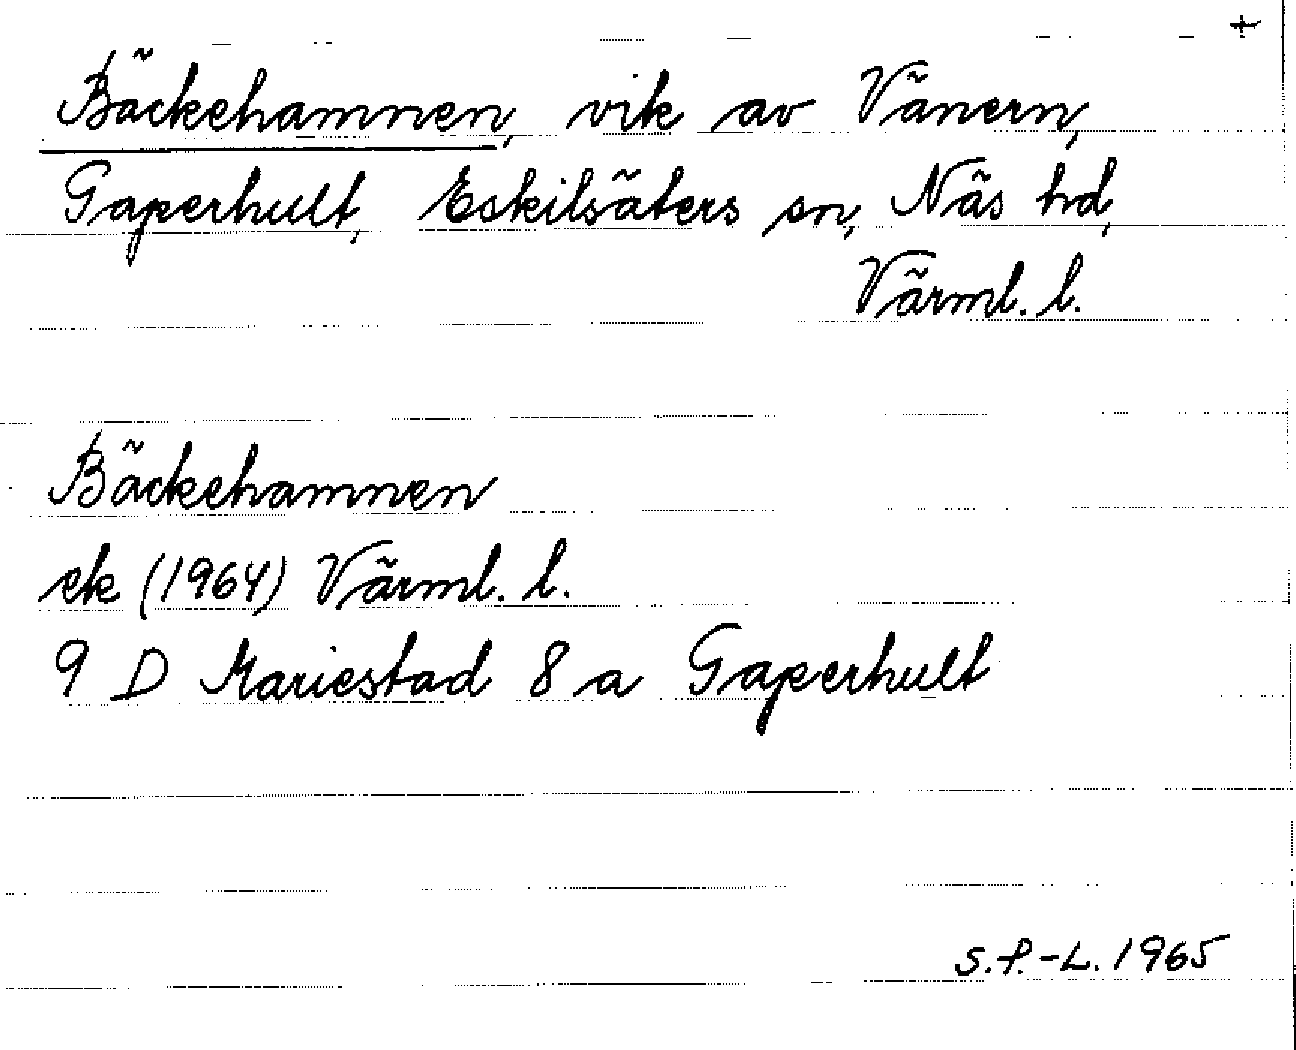 +
Bäckehamnen, vik av Vänern,
Gaperhult, Eskilsäters sn, Näs hd,
Värml. l.
Bäckehamnen
ek (1964) Värml. l.
9 D Mariestad 8 a Gaperhult
S.P.-L. 1965